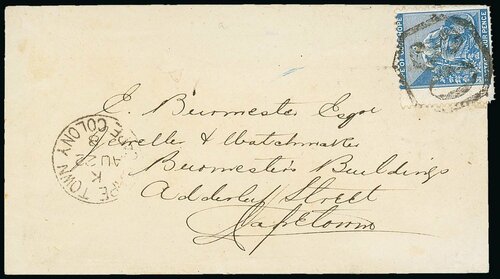 CAPE OF GOOD HOPE
FOUR PENCE
E. Burmester Esqre
Jeweller & Watchmaker
Burmester's Buildings
Adderley Street
Capetown
CAPE TOWN
CAPE COLONY
K
AU 22